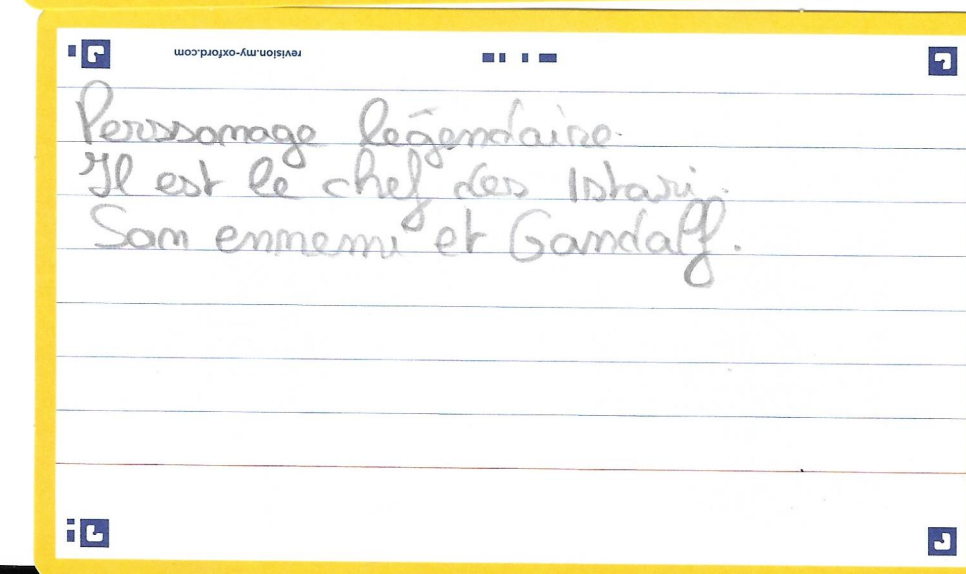 revision.my-oxford.com
Perssonnage légendaire.
Il est le chef des Istari.
Son ennemi et Gandalf.